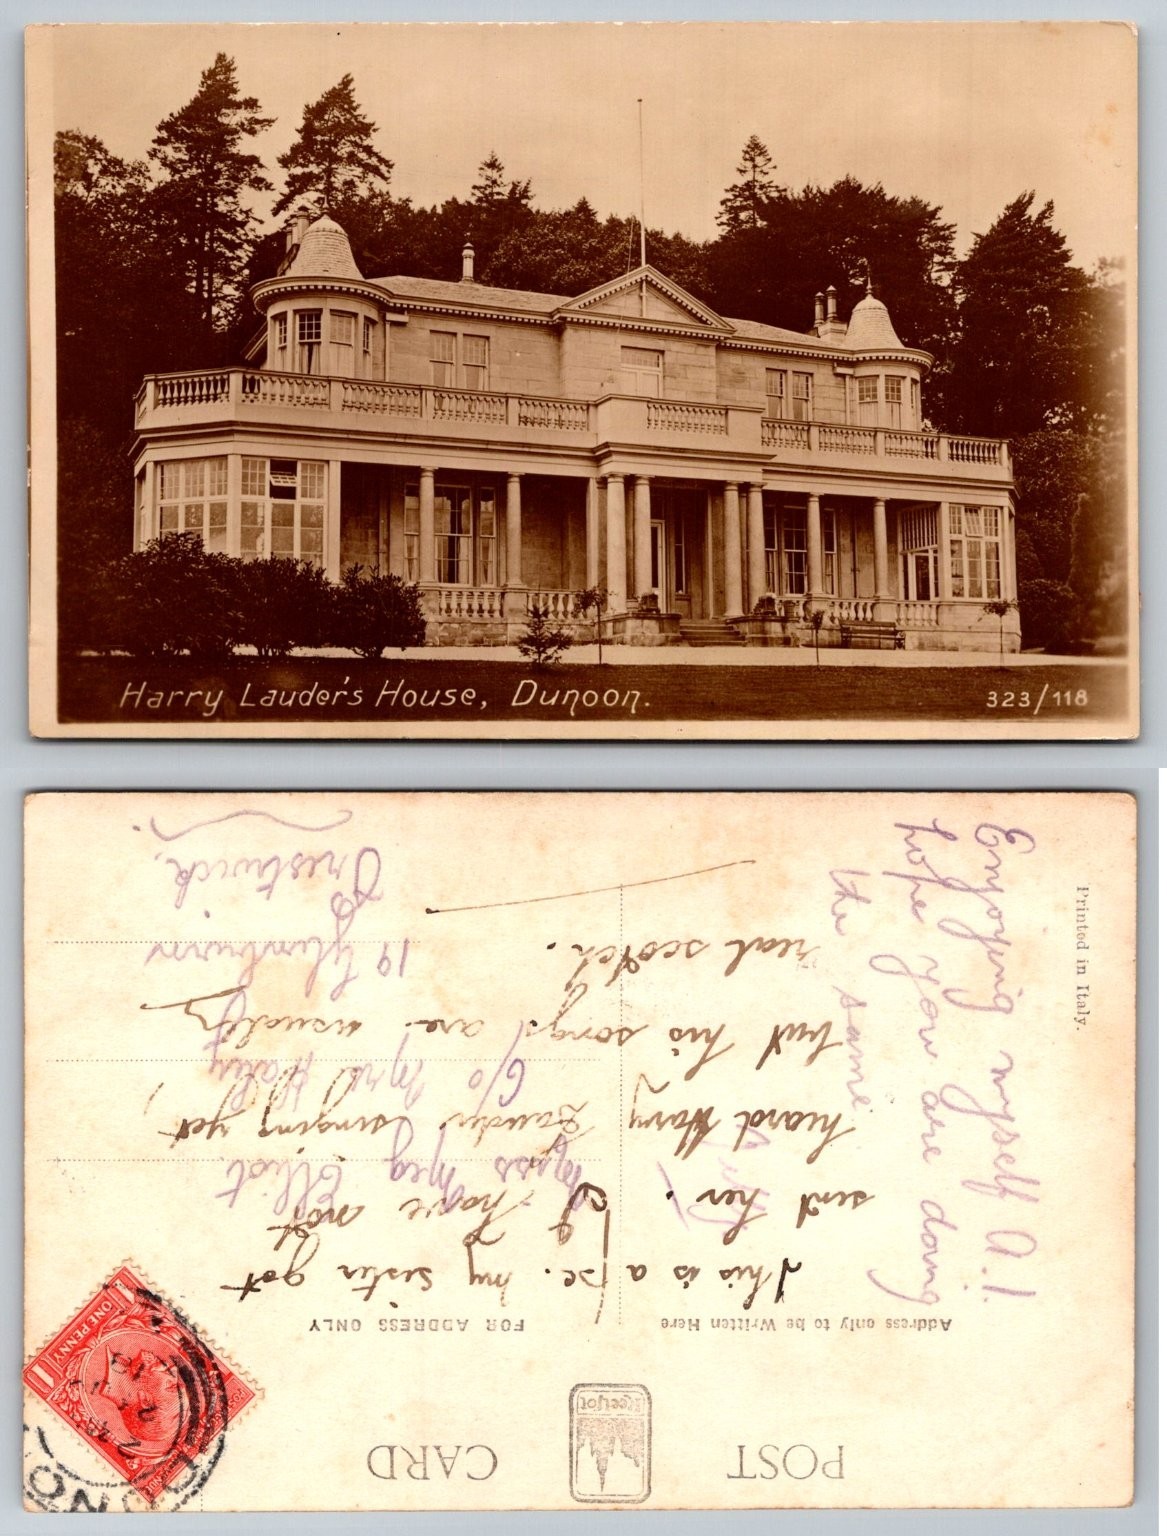 Harry Lauder's House, Dunoon.
323/118
POST CARD
Address only to be Written Here
FOR ADDRESS ONLY
Printed in Italy.
This is a pc. my sister got
sent her. I have not
heard Harry Lauder singing yet,
but his songs are usually
real scotch.
Miss Meg Elliot
c/o Mrs Haley
19 Glenburn
Prestwick.
Enjoying myself A.1.
hope you are doing
the same
ONE PENNY